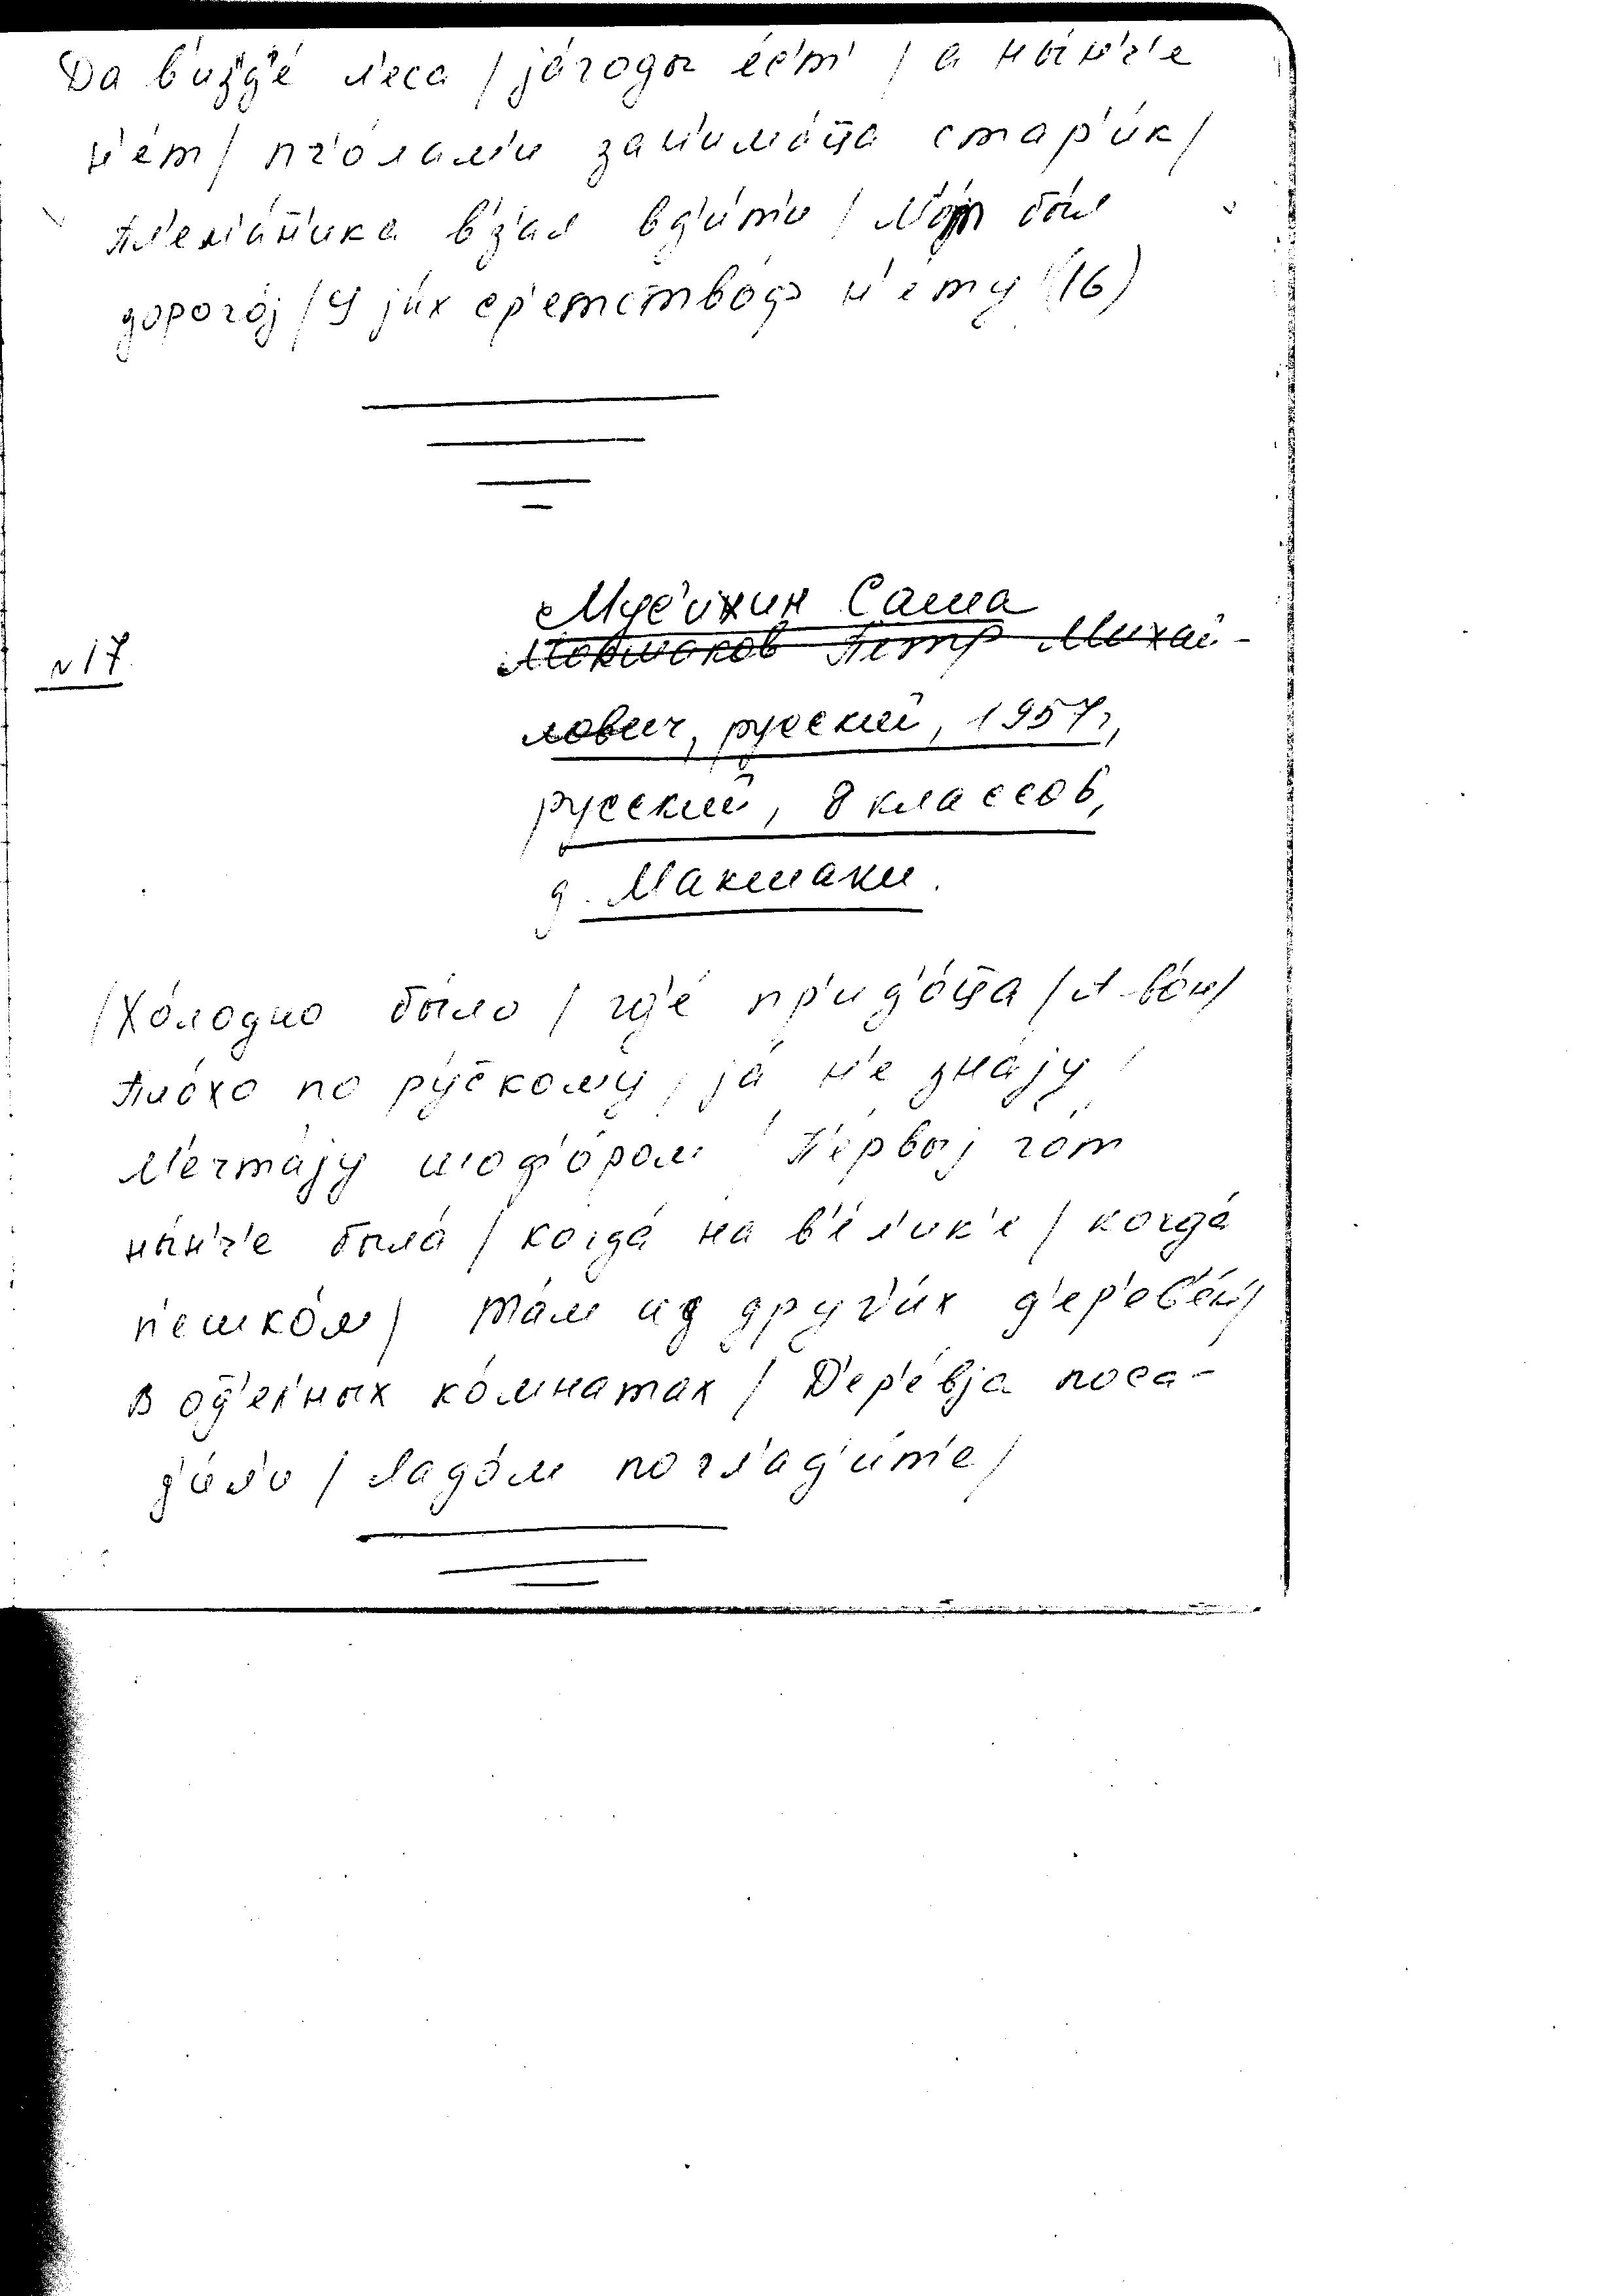 Да в'ид̄'е́ л'еса / já́годы е́с'т' / а ны́н'ч'е
н'е́т / пч'о́лам'и зан'има́ц̄а стар'и́к /
пл'ем'а́н'ика вз'ал вд'и́т'и / М'о́т бы́л
дорого́j / У jи́х ср'етство́ф н'е́ту (16)
№17
Саша
Мокшаков Петр Михай-
лович, русский, 1957г,
русский, 8 классов,
д. Макшаки.
/ Хо́лодно бы́ло / гд'е́ пр'ид'о́ц̄а / А во́н /
Пло́хо по ру́с̄кому / já н'е зна́jу /
М'ечта́jу шоф'о́ром / П'е́рвоj го́т
ны́н'ч'е была́ / когда́ на в'е́л'ик'е / когда́
п'ешко́м / та́м из други́х д'ер'ев'е́н' /
в од̄'е́л'ных ко́мнатах / Д'ер'е́вjа поса-
д'и́л'и / Ладо́м погл'ад'и́т'е /